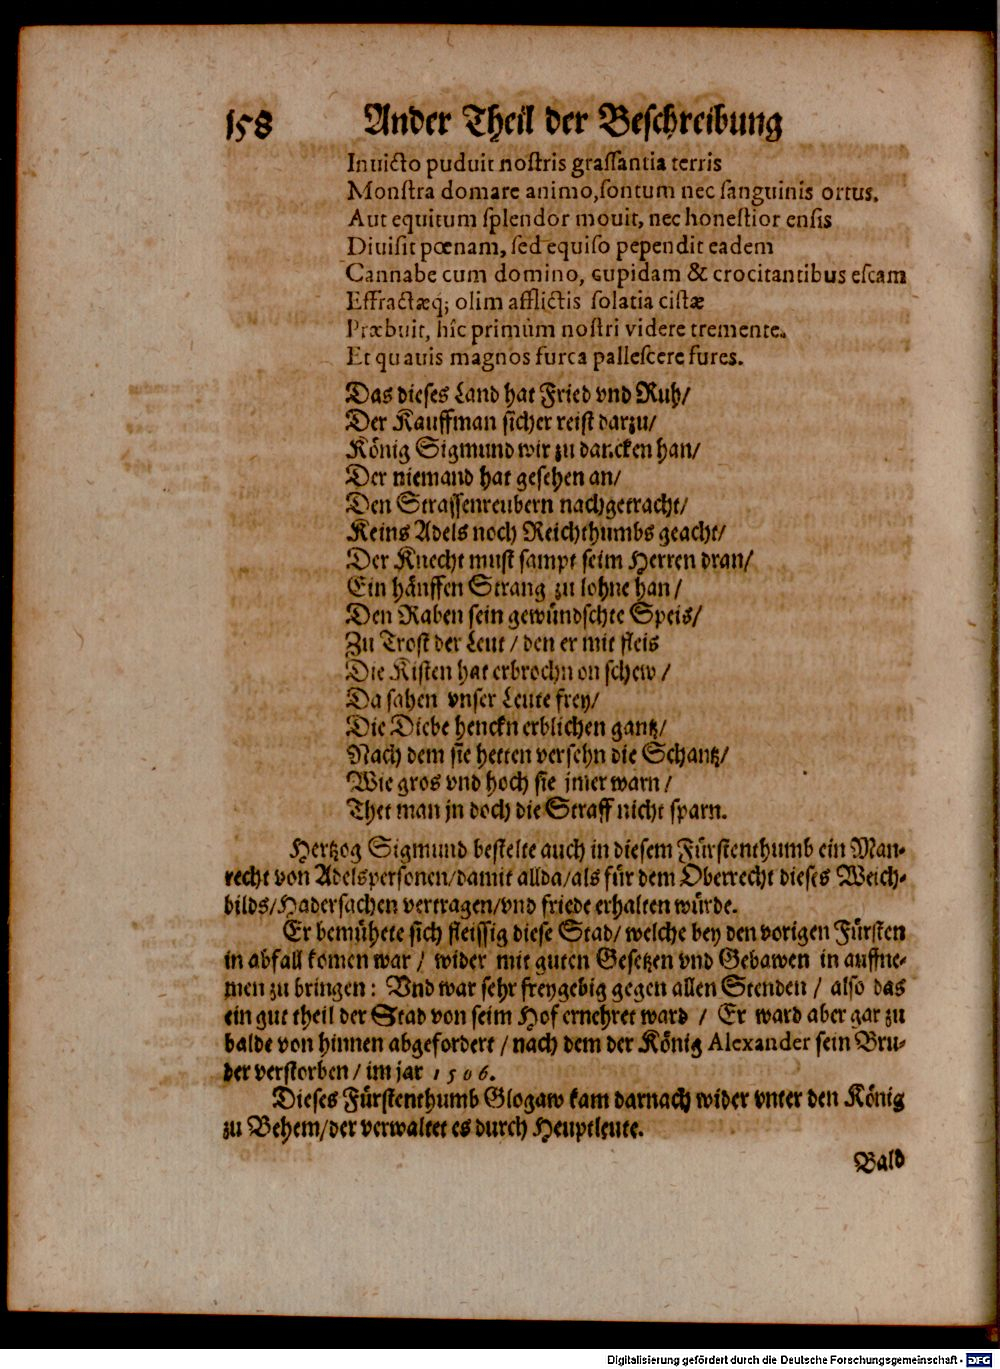 158 Ander Theil der Beschreibung
Inuicto puduit nostris grassantia terris
Monstra domare animo, sontum nec sanguinis ortus.
Aut equitum splendor mouit, nec honestior ensis
Diuisit pœnam, sed equiso pependit eadem
Cannabe cum domino, cupidam & crocitantibus escam
Effractæq; olim afflictis solatia cistæ
Præbuit, hîc primùm nostri videre tremente.
Et quauis magnos furca pallescere fures.
Das dieses Land hat Fried vnd Ruh/
Der Kauffman sicher reist darzu/
König Sigmund wir zu dancken han/
Der niemand hat gesehen an/
Den Strassenreubern nachgetracht/
Keins Adels noch Reichthumbs geacht/
Der Knecht must sampt seim Herren dran/
Ein häuffen Strang zu lohne han/
Den Raben sein gewündschte Speis/
Zu Trost der Leut / den er mit fleis
Die Kisten hat erbrochn on schew /
Da sahen vnser Leute frey/
Die Diebe henckn erblichen gantz/
Nach dem sie hetten versehn die Schantz/
Wie gros vnd hoch sie jmer warn /
Thet man jn doch die Straff nicht sparn.
Hertzog Sigmund bestelte auch in diesem Fürstenthumb ein Man-
recht von Adelspersonen/damit allda/als für dem Oberrecht dieses Weich-
bilds/Hadersachen vertragen/vnd friede erhalten würde.
Er bemühete sich fleissig diese Stad/ welche bey den vorigen Fürsten
in abfall komen war / wider mit guten Gesetzen vnd Gebawen in auffne-
men zu bringen: Vnd war sehr freygebig gegen allen Stenden / also das
ein gut theil der Stad von seim Hof ernehret ward / Er ward aber gar zu
balde von hinnen abgefordert / nach dem der König Alexander sein Bru-
der verstorben / im jar 1506.
Dieses Fürstenthumb Glogaw kam darnach wider vnter den König
zu Behem/der verwaltet es durch Heuptleute.
Bald
Digitalisierung gefördert durch die Deutsche Forschungsgemeinschaft - DFG